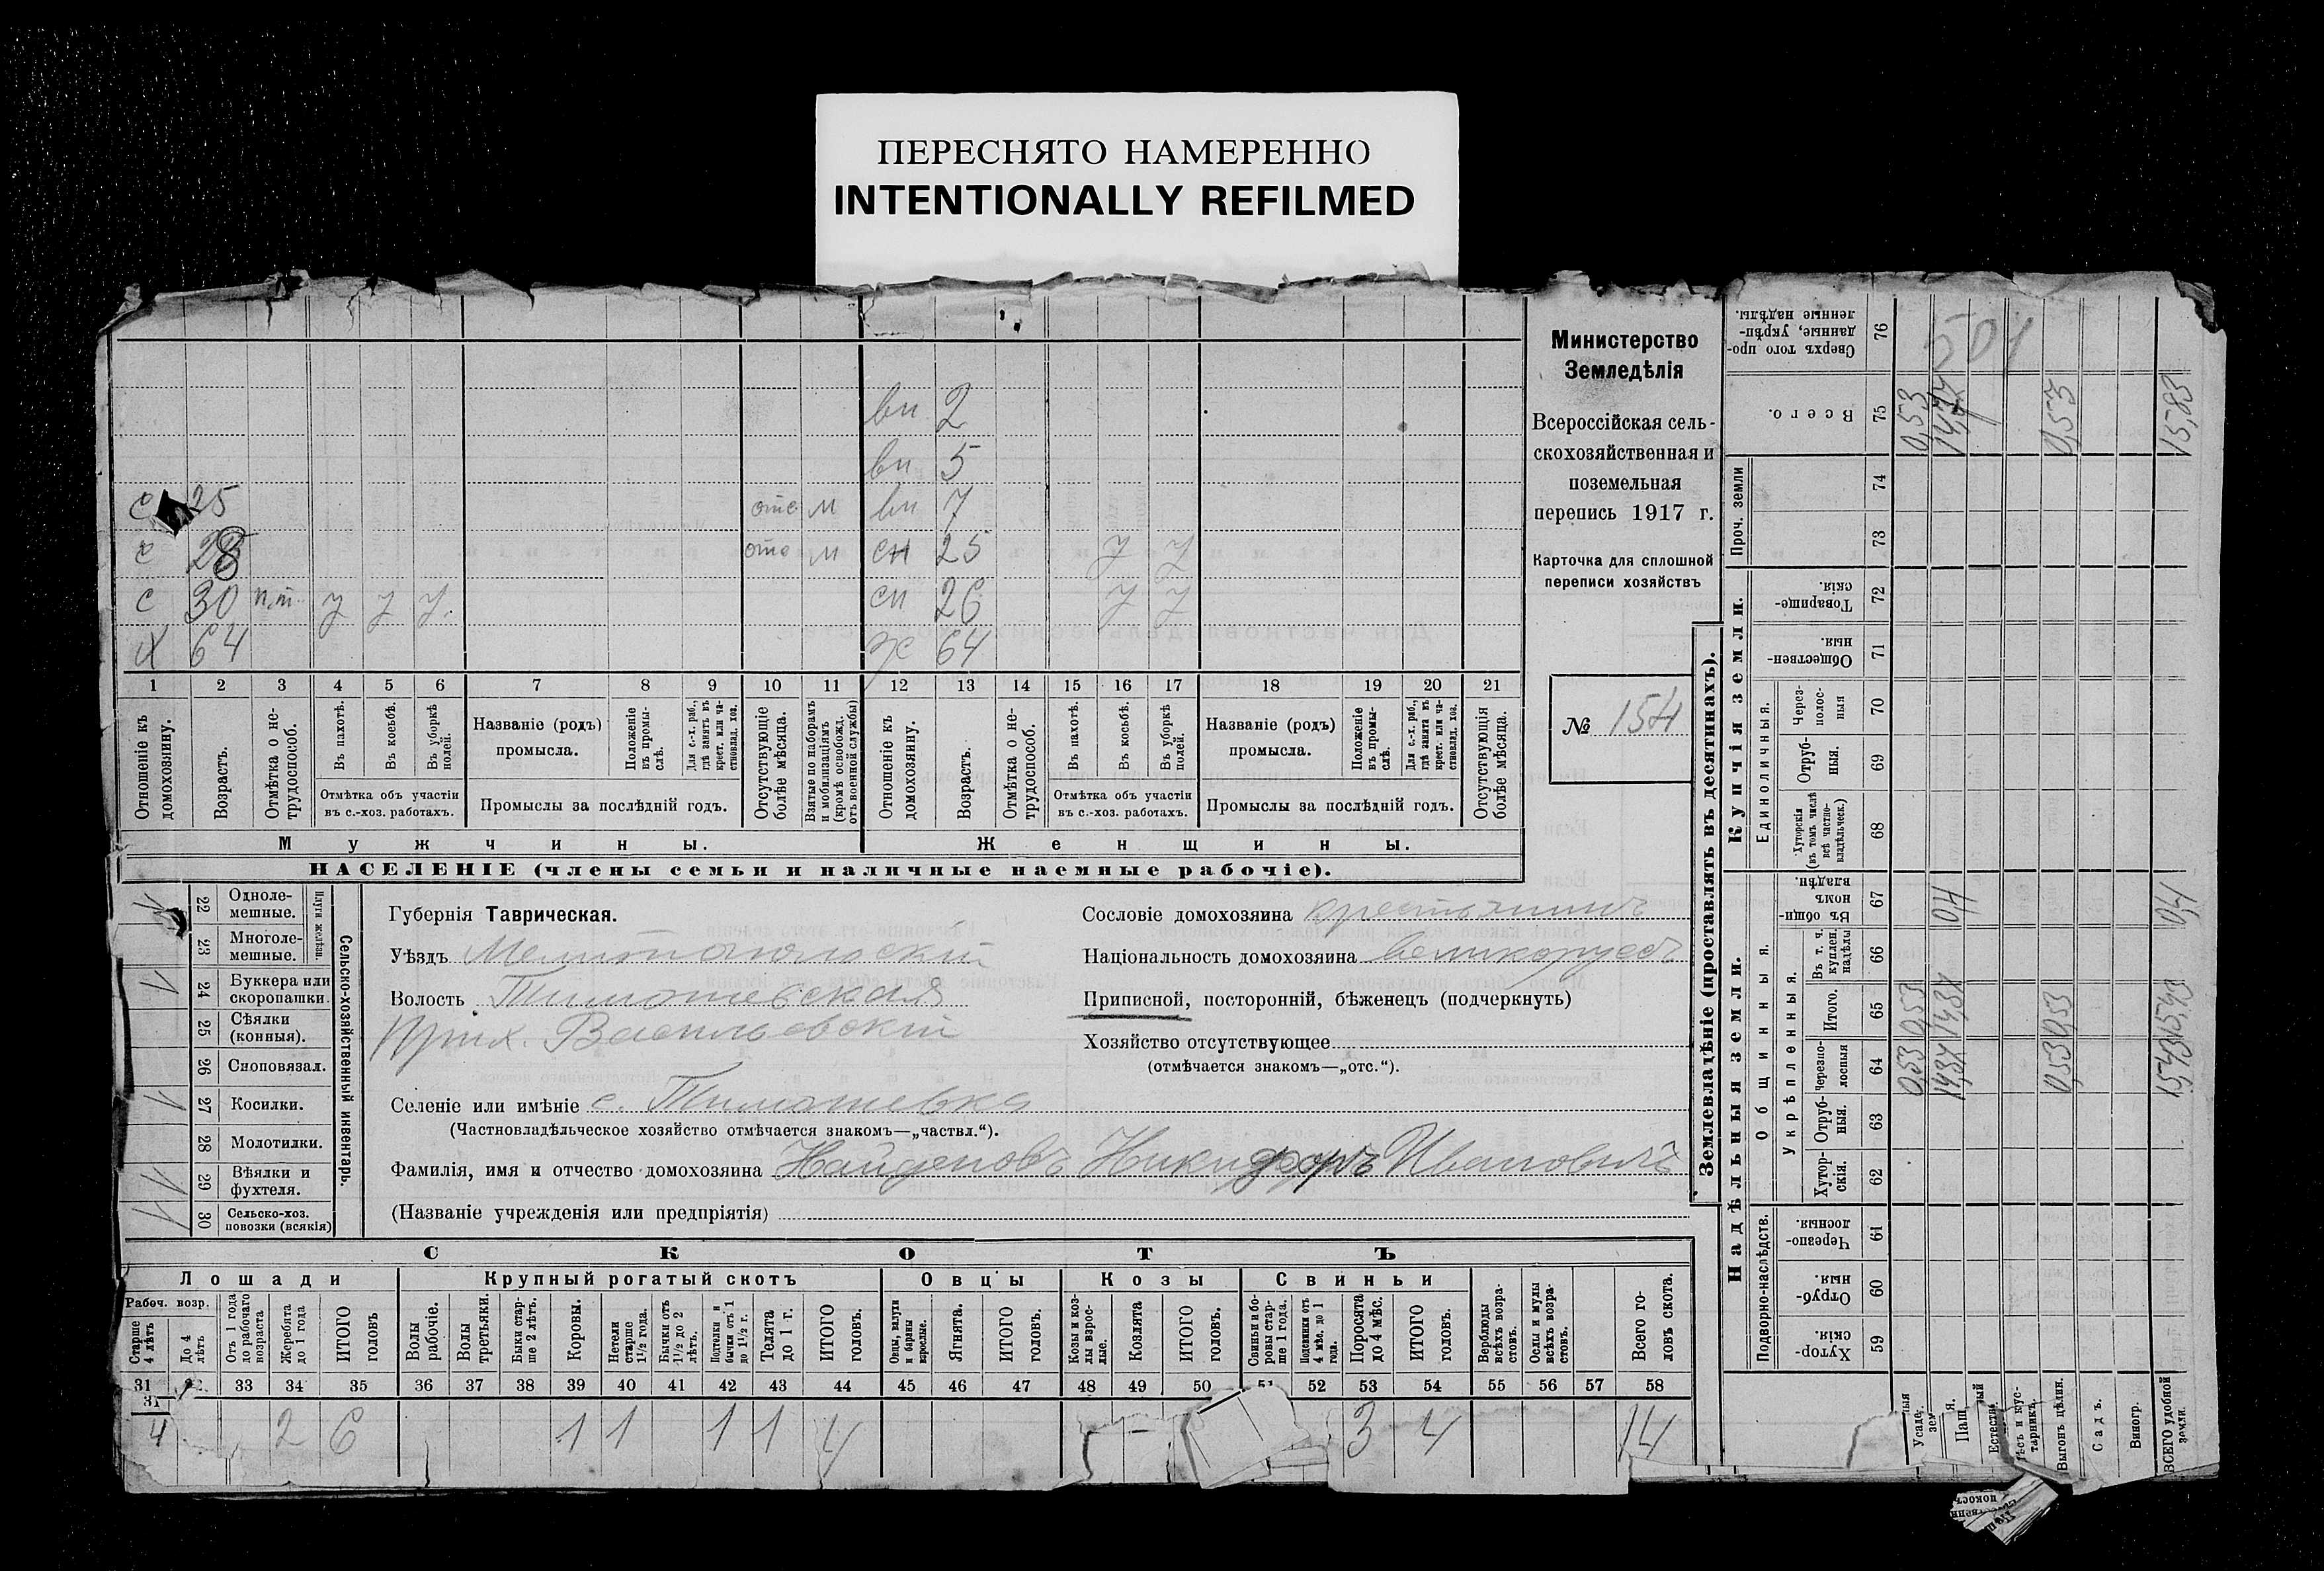 ПЕРЕСНЯТО НАМЕРЕННО
INTENTIONALLY REFILMED
вн 2
вн 5
с 25 отс м вн 7
с 28 отс м сн 25 у у
с 30 п.т. у у у. сн 26 у у
х 64 ж 64
1 2 3 4 5 6 7 8 9 10 11 12 13 14 15 16 17 18 19 20 21
Отношеніе къ домохозяину.
Возрастъ.
Отмѣтка о не-трудоспособ.
Въ пахотѣ.
Въ косьбѣ.
Въ уборкѣ полей.
Отмѣтка объ участіи
въ с.-хоз. работахъ.
Названіе (родъ)
промысла.
Положеніе въ промы-слѣ.
Для с.-х. раб., гдѣ занятъ въ крест. или ча-ствовлад. хоз.
Промыслы за послѣдній годъ.
Отсутствующіе болѣе мѣсяца.
Взятые по наборамъ и мобилизаціямъ (кромѣ освобожд. отъ военной службы)
Отношеніе къ домохозяину.
Возрастъ.
Отмѣтка о не-трудоспособ.
Въ пахотѣ.
Въ косьбѣ.
Въ уборкѣ полей.
Отмѣтка объ участіи
въ с.-хоз. работахъ.
Названіе (родъ)
промысла.
Положеніе въ промы-слѣ.
Для с.-х. раб., гдѣ занята въ крест. или ча-ствовлад. хоз.
Промыслы за послѣдній годъ.
Отсутствующія болѣе мѣсяца.
Мужчины. Женщины.
НАСЕЛЕНІЕ (члены семьи и наличные наемные рабочіе).
Министерство
Земледѣлія
Всероссійская сель-
скохозяйственная и
поземельная
перепись 1917 г.
Карточка для сплошной
переписи хозяйствъ
№ 154
Сельско-хозяйственный инвентарь.
Плуги желѣзн.
22 Одноле-мешные.
23 Многоле-мешные.
24 Буккера или скоропашки.
25 Сѣялки (конныя).
26 Сноповязал.
27 Косилки.
28 Молотилки.
29 Вѣялки и фухтеля.
30 Сельско-хоз. повозки (всякія)
Губернія Таврическая.
Уѣздъ Мелитопольскій
Волость Тимошевская
Прих. Васильевскій
Сословіе домохозяина крестьянинъ
Національность домохозяина великорусъ
Приписной, посторонній, бѣженецъ (подчеркнуть)
Хозяйство отсутствующее
(отмѣчается знакомъ—„отс.“).
Селеніе или имѣніе с. Тимошевка
(Частновладѣльческое хозяйство отмѣчается знакомъ—„частвл.“).
Фамилія, имя и отчество домохозяина Найденовъ Никифоръ Ивановичъ
(Названіе учрежденія или предпріятія)
СКОТЪ
Лошади Крупный рогатый скотъ Овцы Козы Свиньи
Рабоч. возр.
Старше 4 лѣтъ
До 4 лѣтъ
Отъ 1 года до рабочаго возраста
Жеребята до 1 года
ИТОГО головъ
Волы рабочіе.
Волы третьяки.
Быки стар-ше 2 лѣтъ.
Коровы.
Нетели старше 1½ года.
Бычки отъ 1½ до 2 лѣтъ.
Подтелки и бычки отъ 1 до 1½ г.
Телята до 1 г.
ИТОГО головъ.
Овцы, валухи и бараны взрослые.
Ягнята.
ИТОГО головъ.
Козы и коз-лы взрос-лые.
Козлята
ИТОГО головъ.
Свиньи и бо-ровы стар-ше 1 года.
Подсвинки отъ 4 мѣс. до 1 года.
Поросята до 4 мѣс.
ИТОГО головъ.
Верблюды всѣхъ возра-стовъ.
Ослы и мулы всѣхъ возра-стовъ.
Всего го-ловъ скота.
31 33 34 35 36 37 38 39 40 41 42 43 44 45 46 47 48 49 50 51 52 53 54 55 56 57 58
31
4 2 6 1 1 1 1 4 3 4 14
Землевладѣніе (проставлять въ десятинахъ).
Надѣльныя земли. Купчія земли. Проч. земли
Подворно-наслѣдств.
Общинныя.
Укрѣпленныя.
Единоличныя.
59 Хутор-скія.
60 Отруб-ныя.
61 Черезпо-лосныя
62 Хутор-скія.
63 Отруб-ныя.
64 Черезпо-лосныя
65 Итого.
66 Въ т. ч. куплен. надѣлы
67 Въ общин-номъ владѣн.
68 Хуторскія (въ томъ числѣ всѣ частно-владѣльческ.)
69 Отруб-ныя.
70 Через-полос-ныя
71 Обществен-ныя.
72 Товарище-скія.
73
74
75 Всего.
76 Сверхъ того про-данные, укрѣп-ленные надѣлы.
0,53 0,53 0,53
14,37 14,37 0,4
0,53 0,53 0,53
15,43 15,43 0,4 15,83
Выгонъ цѣлин.
Садъ.
Виногр.
ВСЕГО удобной земли.